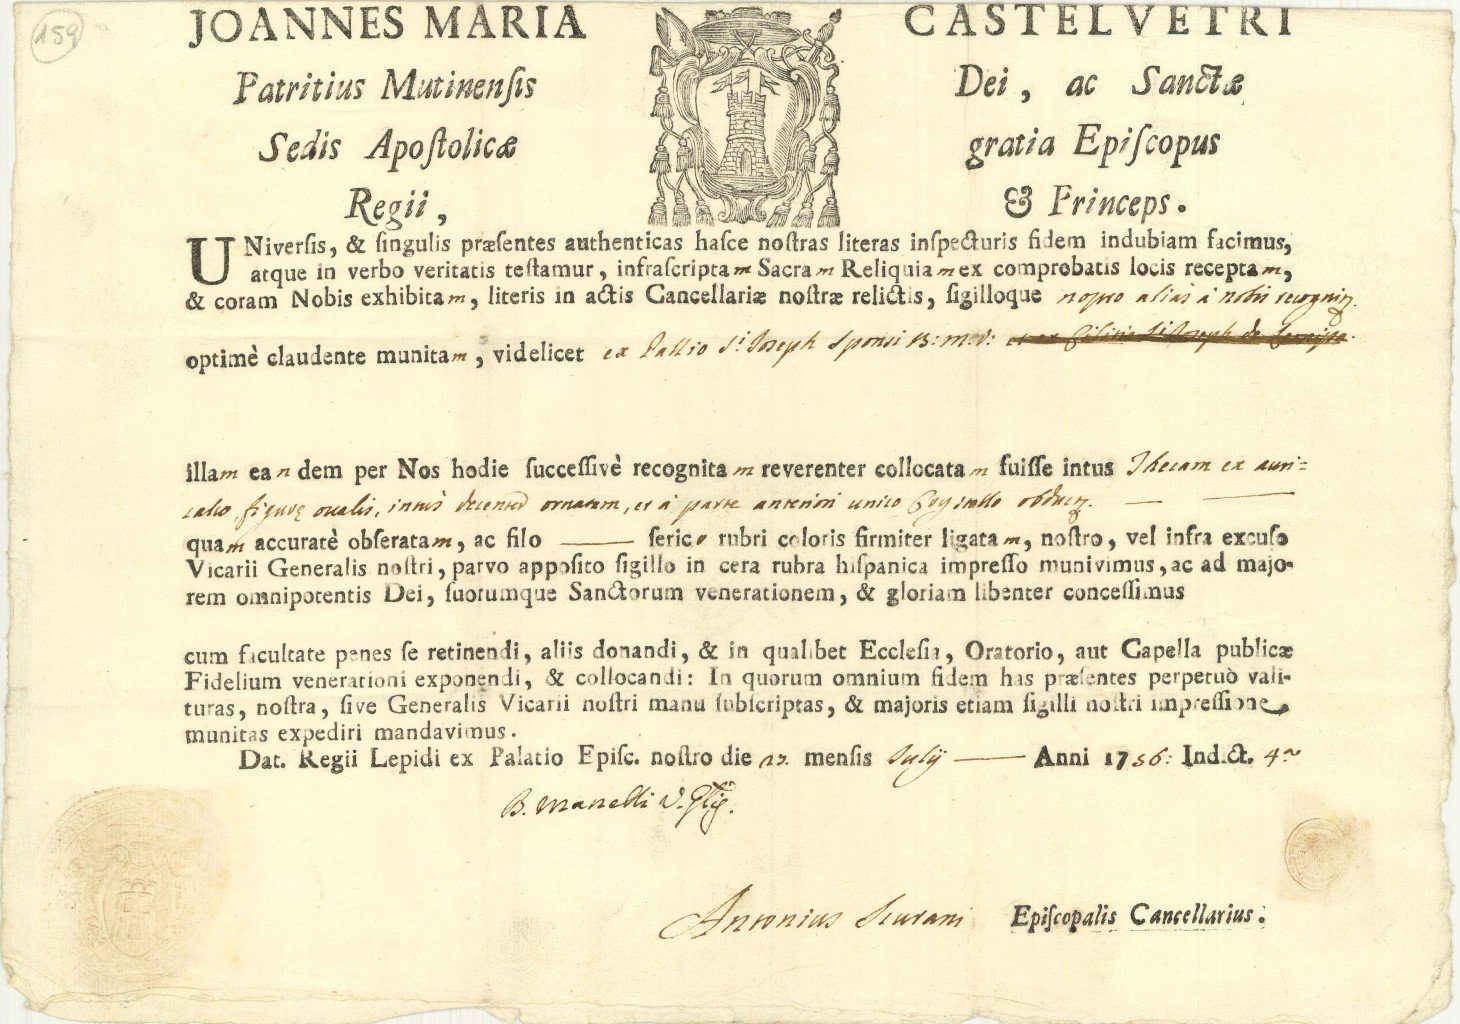 159
JOANNES MARIA CASTELVETRI
Patritius Mutinenſis Dei, ac Sanctæ
Sedis Apoſtolicæ gratia Epiſcopus
Regii, & Princeps.
UNiverſis, & ſingulis præſentes authenticas haſce noſtras literas inſpecturis fidem indubiam facimus,
atque in verbo veritatis teſtamur, infraſcriptam Sacram Reliquiam ex comprobatis locis receptam,
& coram Nobis exhibitam, literis in actis Cancellariæ noſtræ relictis, ſigilloque nostro alias à nobis
optimè claudente munitam, videlicet ex Pallio S.ti Joseph Sponsi B: M: V:
illam eandem per Nos hodie ſucceſſivè recognitam reverenter collocatam fuiſſe intus Thecam ex auri=
calco, figurę ovalis, intus decenter ornatam, et à parte anteriori unico Crystallo
quam accuratè obſeratam, ac filo —— ſerico rubri coloris firmiter ligatam, noſtro, vel infra excuſo
Vicarii Generalis noſtri, parvo appoſito ſigillo in cera rubra hiſpanica impreſſo munivimus, ac ad majo-
rem omnipotentis Dei, ſuorumque Sanctorum venerationem, & gloriam libenter conceſſimus
cum facultate penes ſe retinendi, aliis donandi, & in qualibet Eccleſia, Oratorio, aut Capella publicæ
Fidelium venerationi exponendi, & collocandi: In quorum omnium fidem has præſentes perpetuò vali-
turas, noſtra, ſive Generalis Vicarii noſtri manu ſubſcriptas, & majoris etiam ſigilli noſtri impreſſione
munitas expediri mandavimus.
Dat. Regii Lepidi ex Palatio Epiſc. noſtro die mensis Julij —— Anni 1756: Indict. 4.a
B. Manelli V. Glis.
Antonius Epiſcopalis Cancellarius.